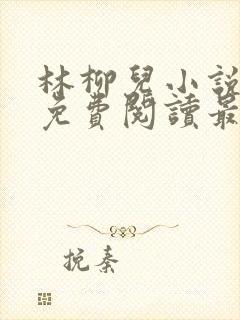 林柳兒小說
免費閱讀最
挽秦